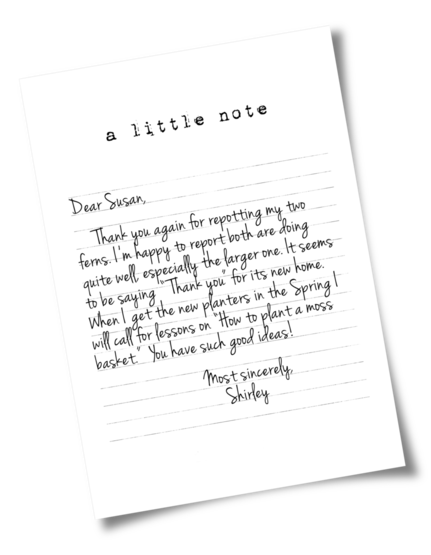 a little note
Dear Susan,
Thank you again for repotting my two
ferns. I'm happy to report both are doing
quite well, especially the larger one. It seems
to be saying "Thank you" for its new home.
When I get the new planters in the Spring I
will call for lessons on "How to plant a moss
basket." You have such good ideas!
Most sincerely,
Shirley